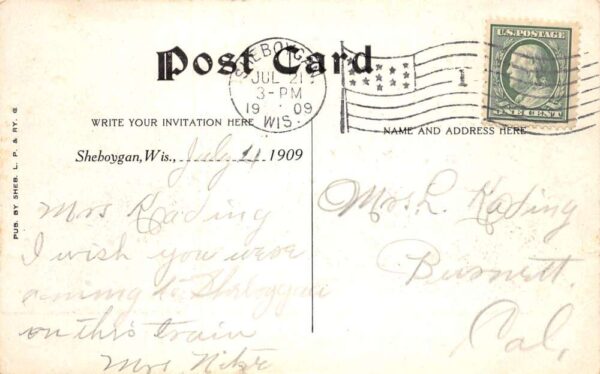 Post Card
SHEBOYGAN
JUL 21
3-PM
1909
WIS.
1
U.S. POSTAGE
ONE CENT
WRITE YOUR INVITATION HERE
NAME AND ADDRESS HERE
Sheboygan, Wis., July 1909
PUB. BY SHEB. L. P. & RY. ©
Mrs Kading
I wish you were
coming to Sheboygan
on this train
Mrs
Mrs. L. Kading
Burnett.
Cal.